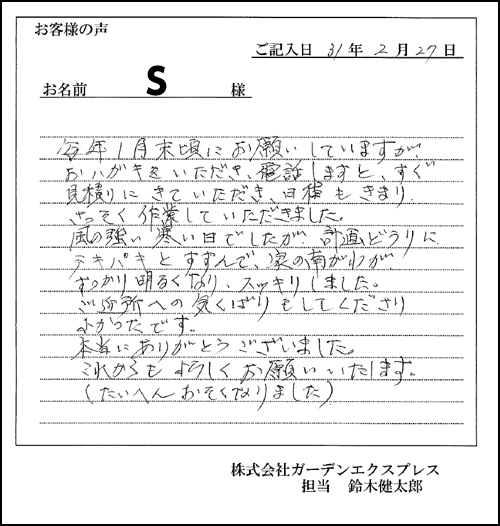 お客様の声
ご記入日 31年 2月 27日
お名前 S 様
毎年1月末頃にお願いしていますが、
おハガキをいただき、電話しますと、すぐ
見積りにきていただき、日程もきまり、
さっそく作業していただきました。
風の強い寒い日でしたが、計画どうりに
テキパキとすすんで、家の南がわが、
すっかり明るくなり、スッキリしました。
ご近所への気くばりもしてくださり
よかったです。
本当にありがとうございました。
これからもよろしくお願いいたします。
(たいへんおそくなりました)
株式会社ガーデンエクスプレス
担当 鈴木健太郎